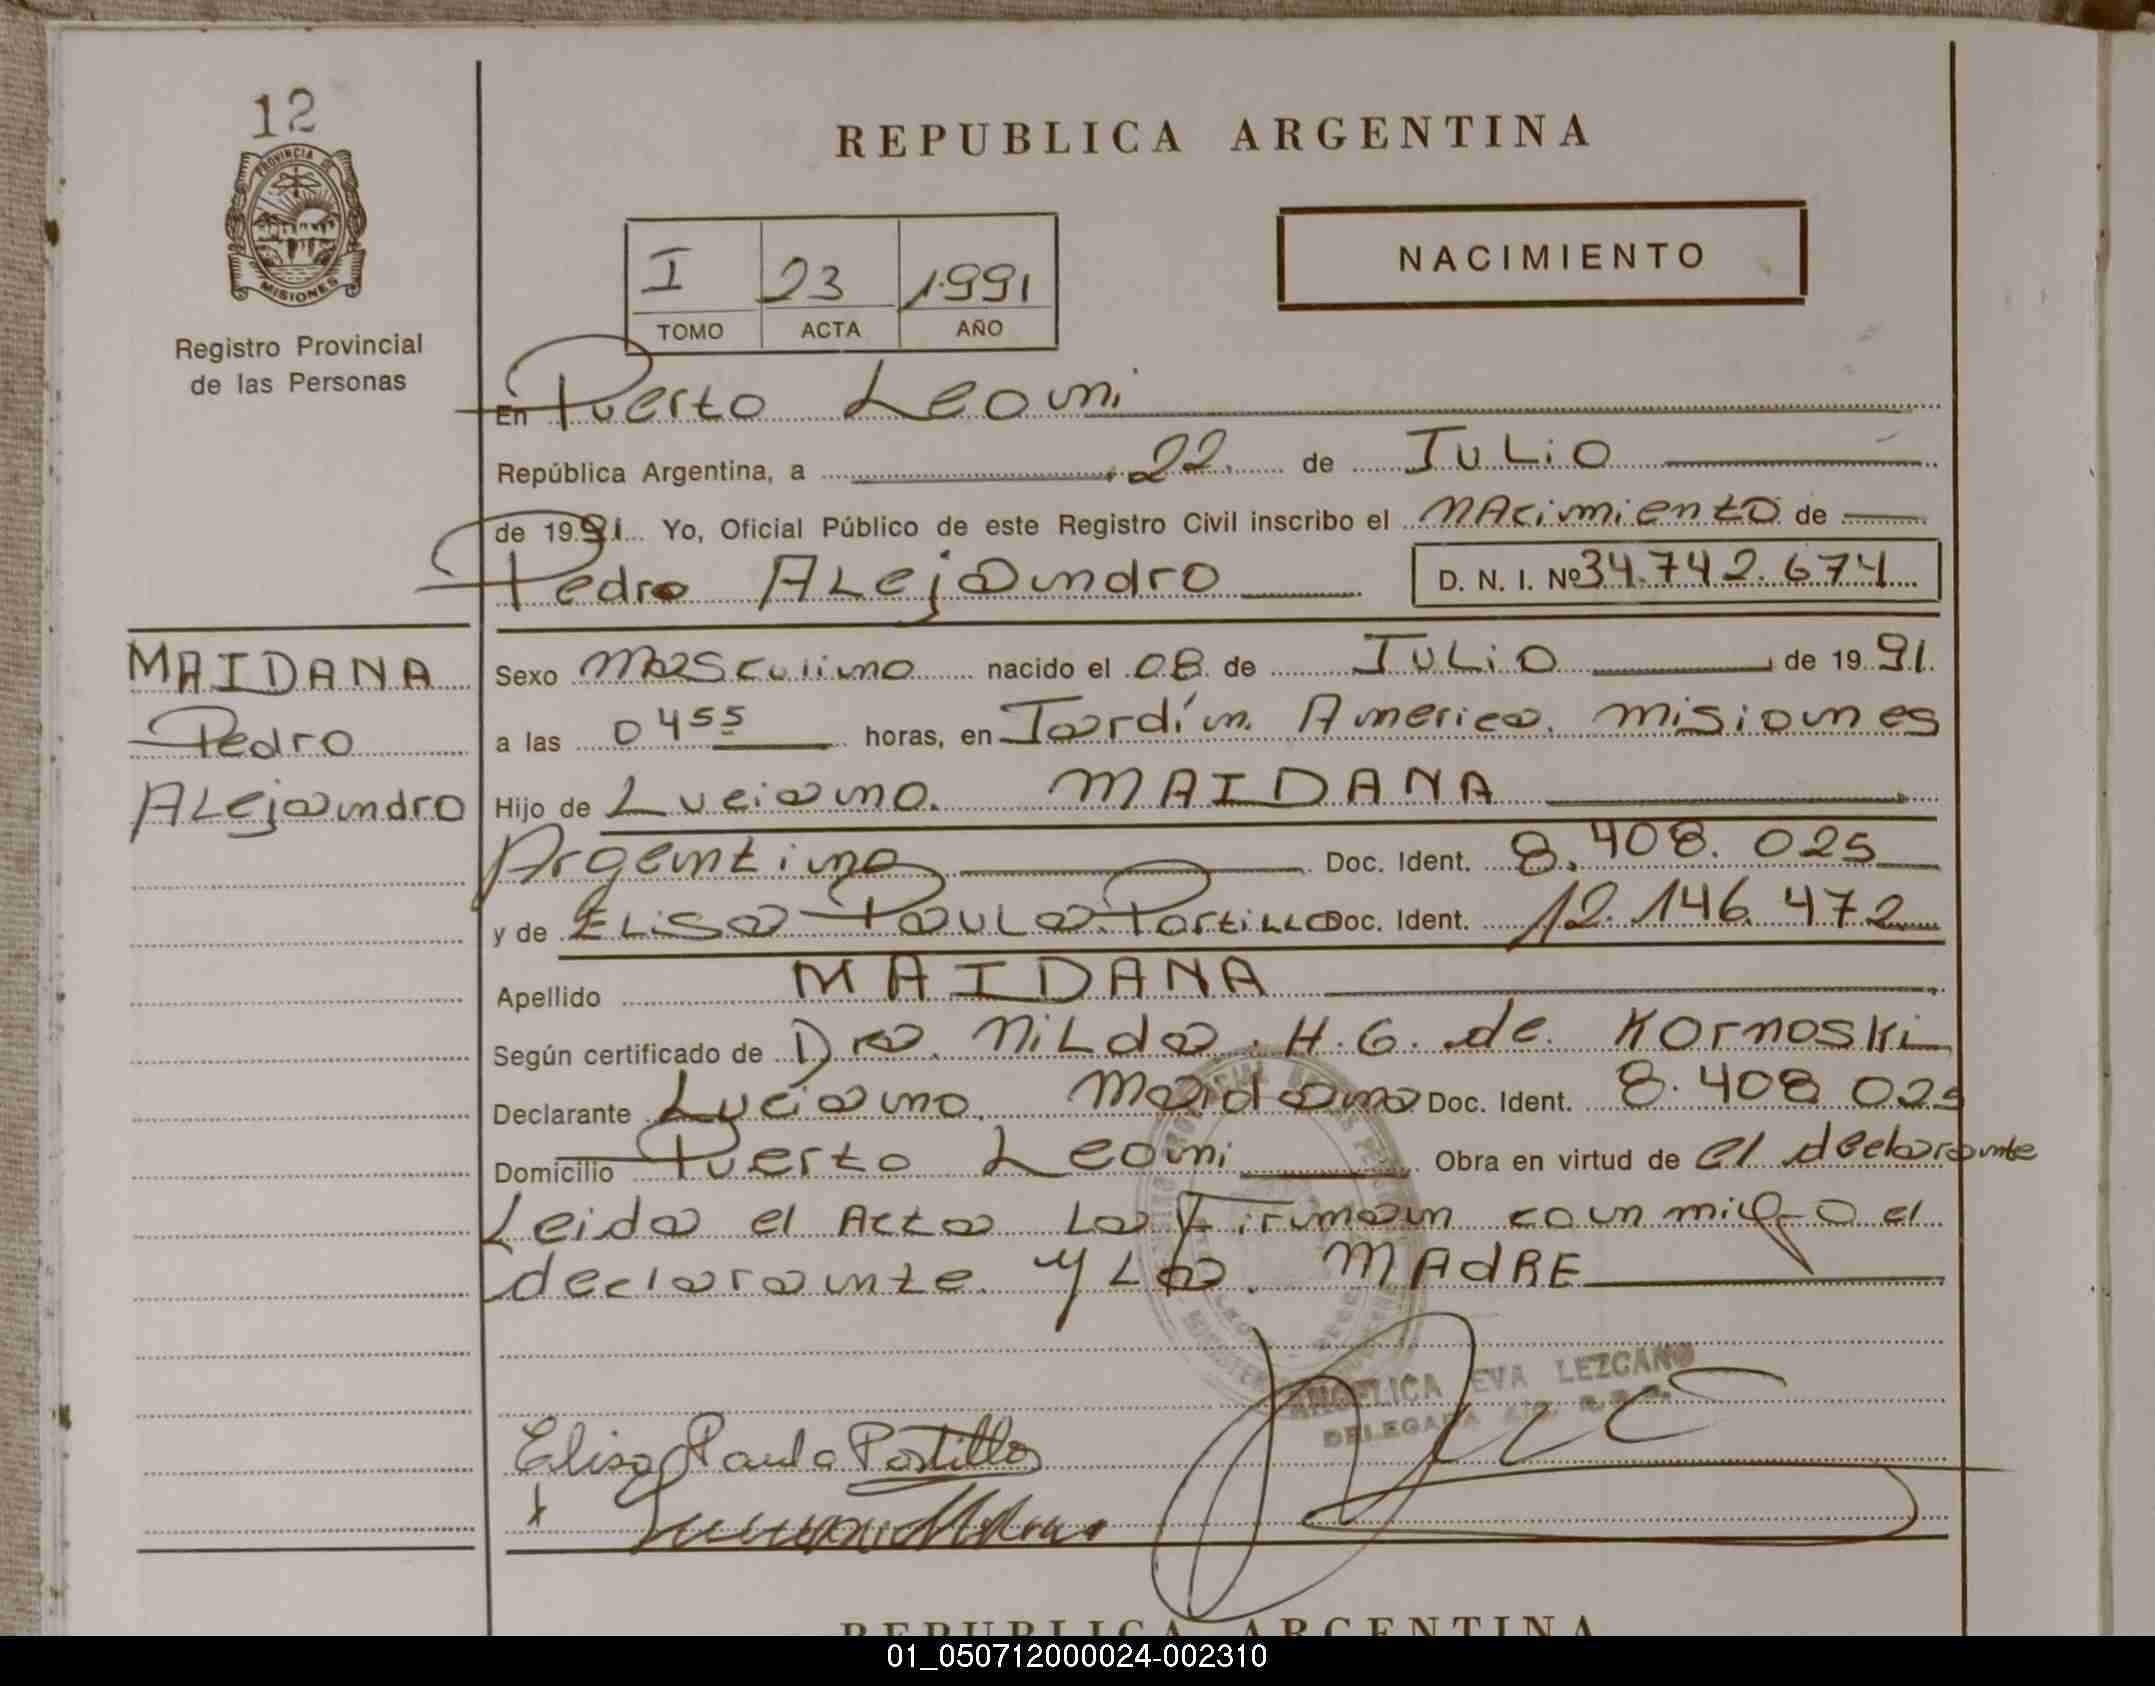 12
PROVINCIA DE
MISIONES
Registro Provincial
de las Personas
REPUBLICA ARGENTINA
I 23 1991
TOMO ACTA AÑO
NACIMIENTO
En Puerto Leoni
República Argentina, a 22 de JULIO
de 1991 Yo, Oficial Público de este Registro Civil inscribo el NAcimiento de
Pedro ALejandro D. N. I. Nº 34.742.674
MAIDANA
Pedro
ALejandro
Sexo Masculino nacido el 08 de JULiO de 1991.
a las 0455 horas, en Jardín America. Misiones
Hijo de Luciano. MAIDANA
Argentino Doc. Ident. 8.408.025
y de ELisa PauLa Portillo Doc. Ident. 12.146.472
Apellido MAIDANA
Según certificado de Dra. NiLda. H. G. de Kornoski
Declarante Luciano. Maidana Doc. Ident. 8.408 025
Domicilio Puerto Leoni Obra en virtud de el declarante
Leida el Acta La Firman conmigo el
declarante y La MADRE
ANGELICA EVA LEZCANO
DELEGADA
Elisa Paula Portillo
REPUBLICA ARGENTINA
01_050712000024-002310